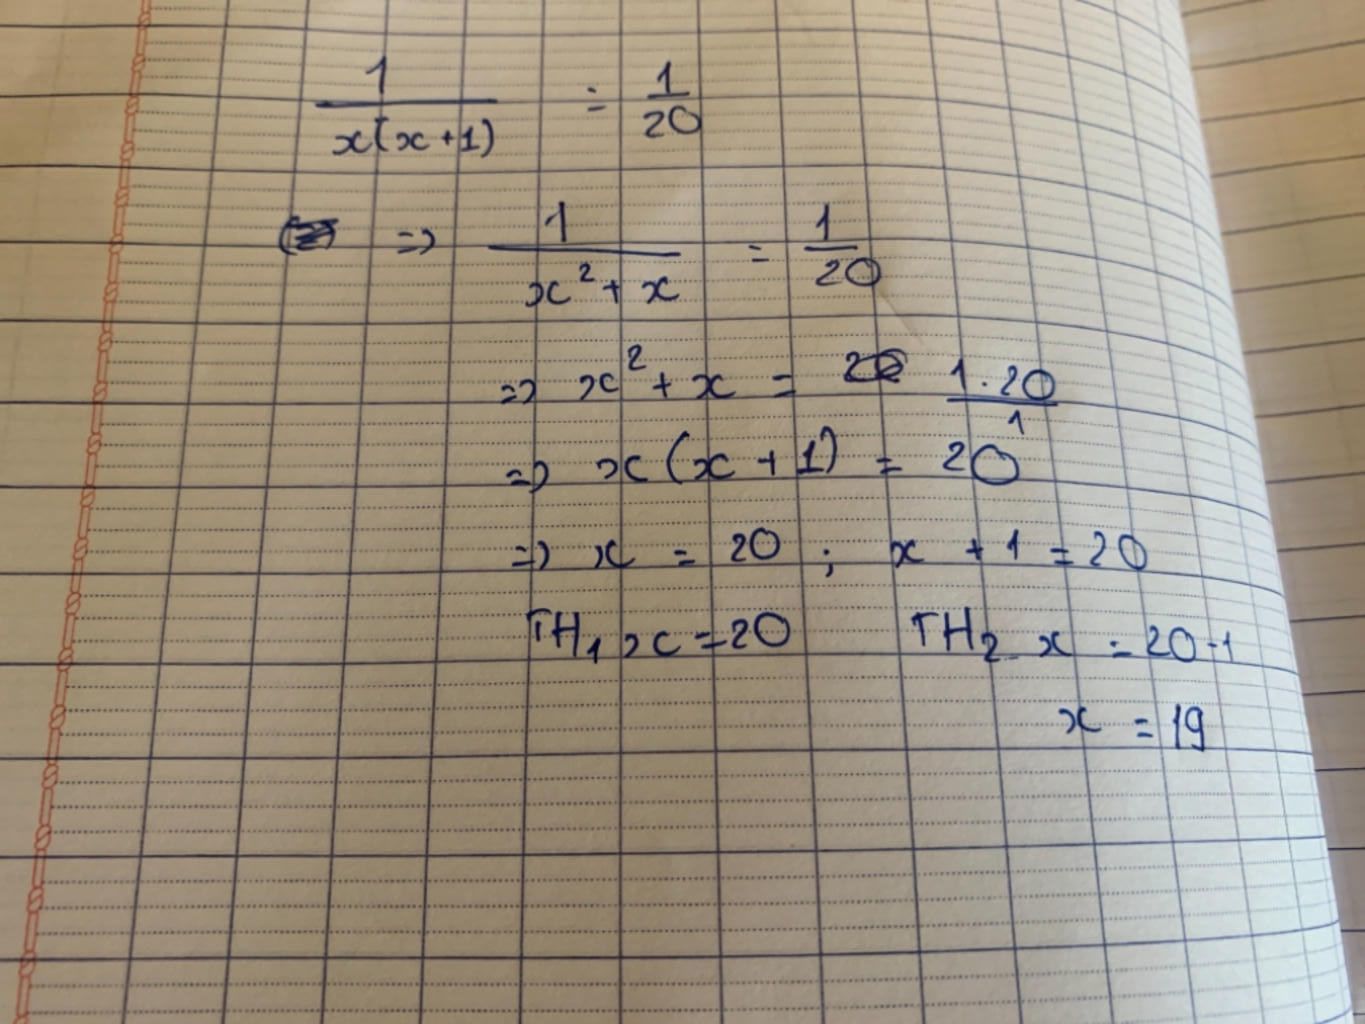 1/(x(x+1)) = 1/20
=> 1/(x²+x) = 1/20
=> x²+x = (1.20)/1
=> x(x+1) = 20
=> x = 20 ; x + 1 = 20
TH₁ x = 20 TH₂ x = 20-1
x = 19